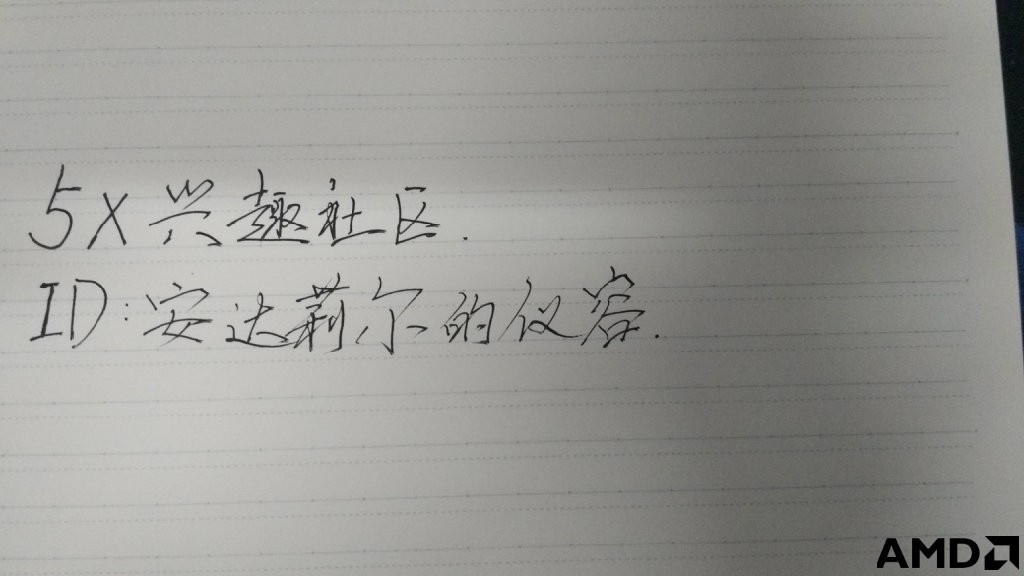 5X兴趣社区.
ID:安达莉尔的仪容.
AMD